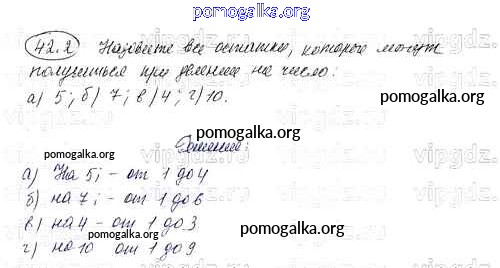 pomogalka.org
42.2 Назовите все остатки, которые могут
получиться при делении на число:
а) 5; б) 7; в) 4; г) 10.
pomogalka.org
pomogalka.org
Решение:
pomogalka.org
а) На 5; - от 1 до 4
б) на 7; - от 1 до 6
в) на 4 - от 1 до 3
г) на 10 от 1 до 9
pomogalka.org
pomogalka.org